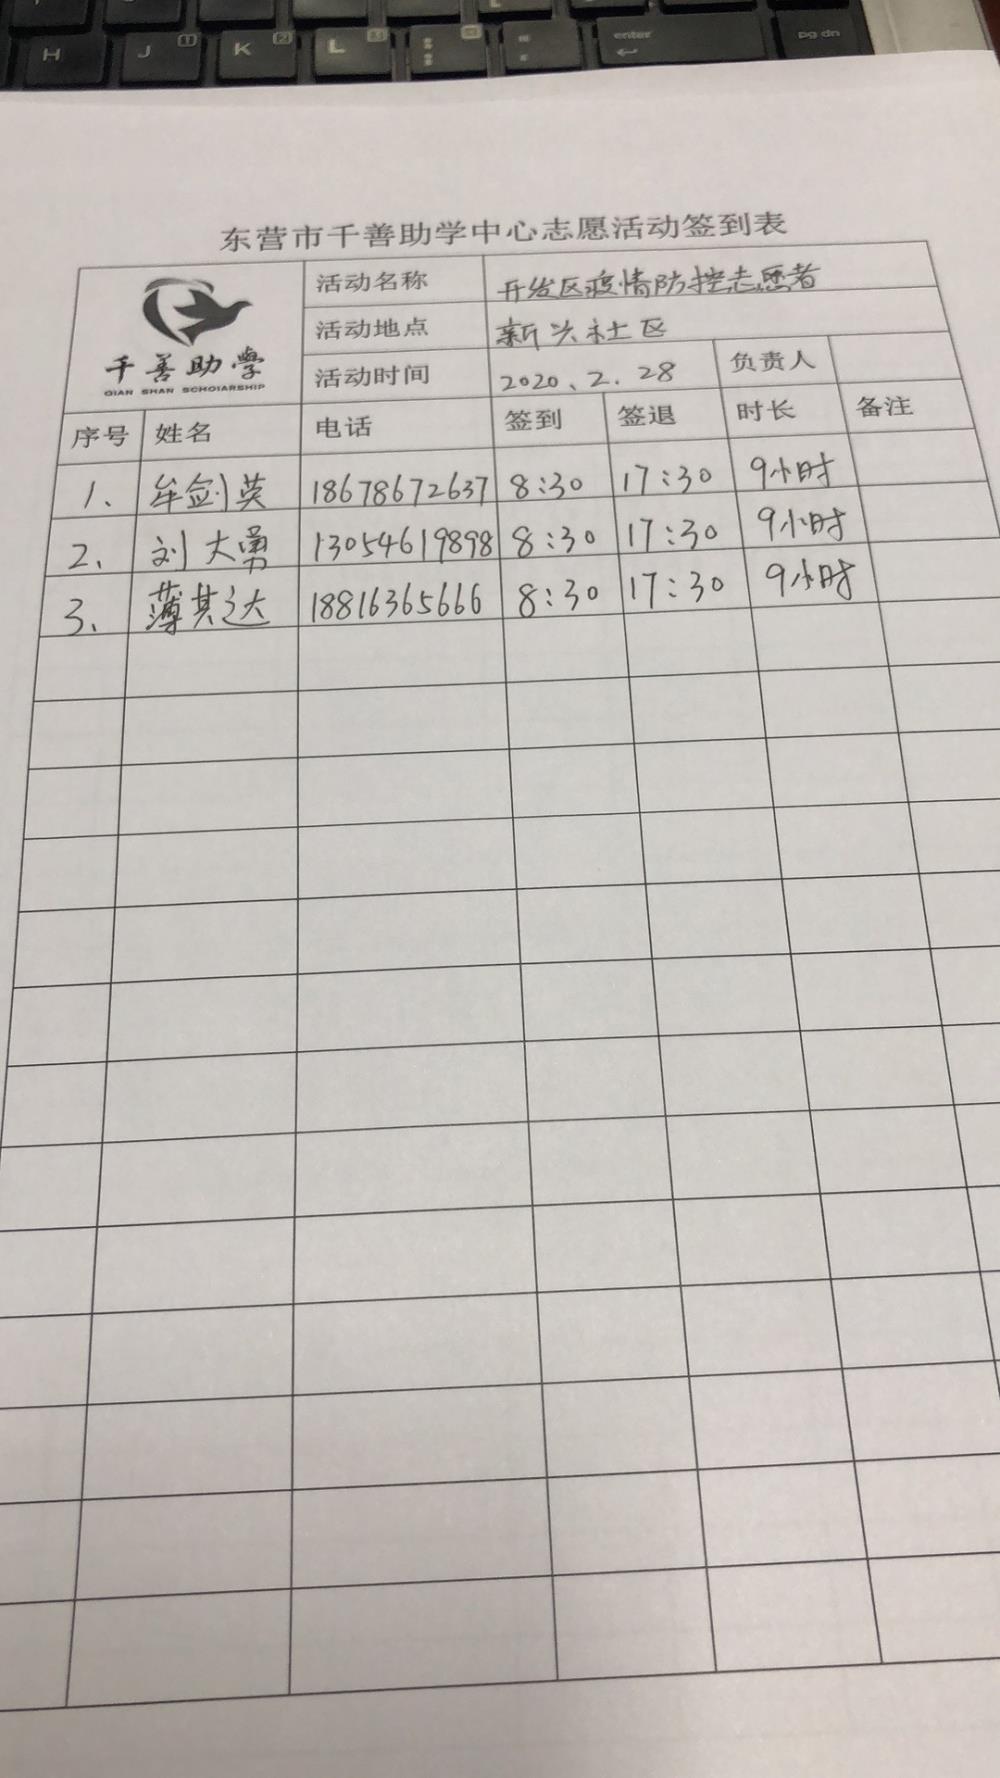 H J 1 K 2 L 3 : ; " ' enter pg dn
东营市千善助学中心志愿活动签到表
千善助學
QIAN SHAN SCHOLARSHIP
活动名称 开发区疫情防控志愿者
活动地点 新兴社区
活动时间 2020.2.28 负责人
序号 姓名 电话 签到 签退 时长 备注
1、 牟剑英 18678672637 8:30 17:30 9小时
2、 刘大勇 13054619898 8:30 17:30 9小时
3、 薄其达 18816365666 8:30 17:30 9小时